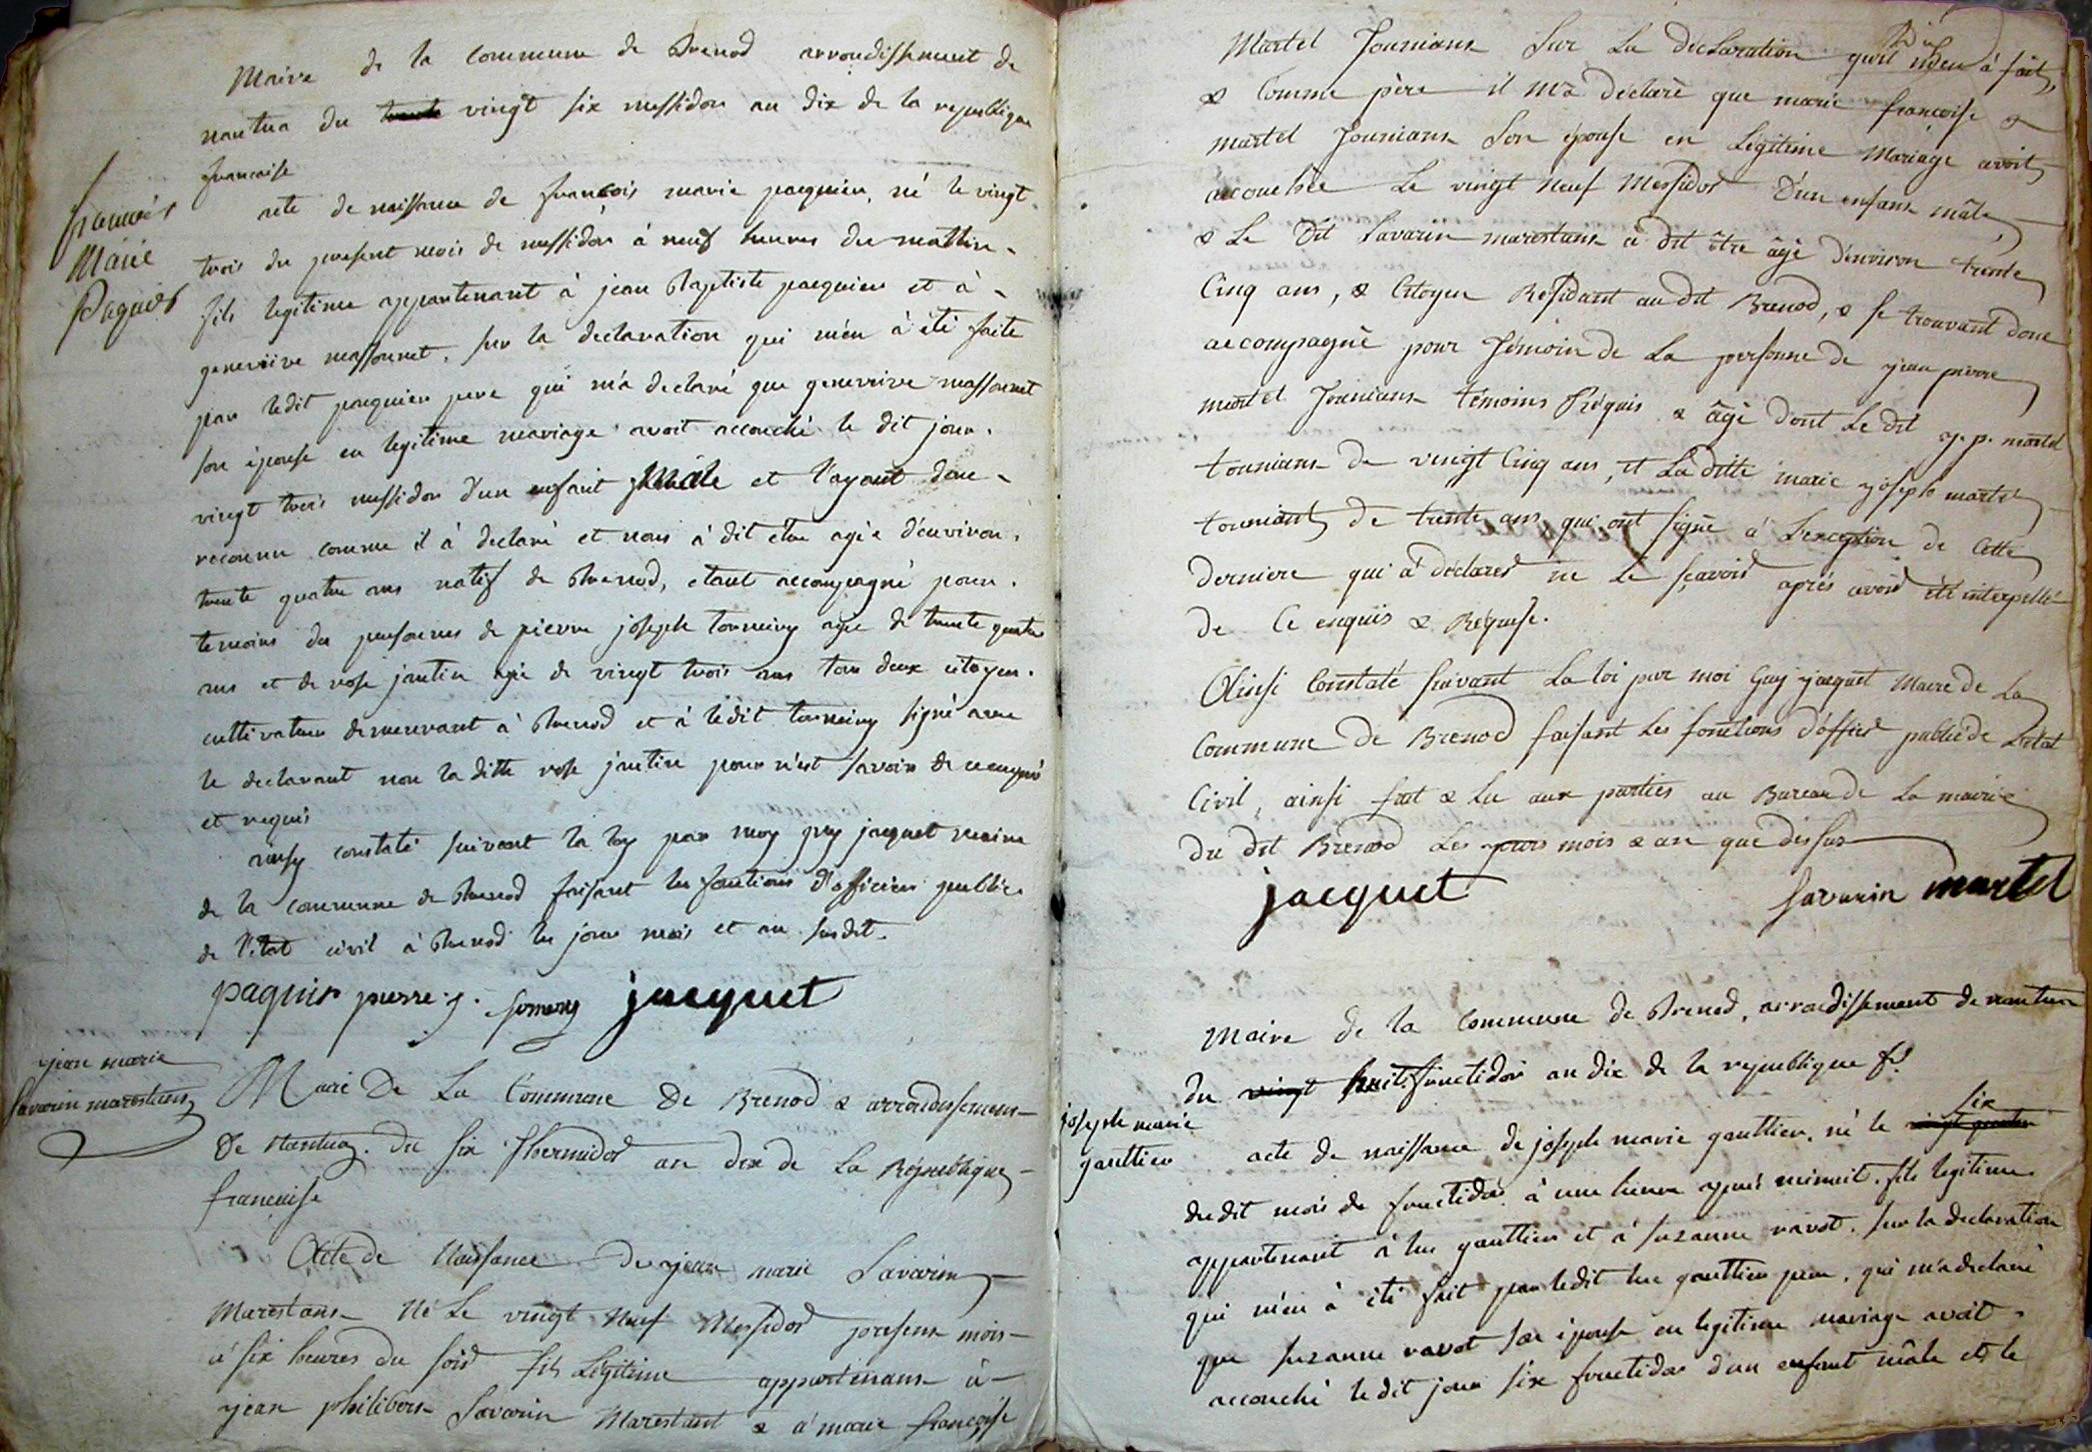 Maire de la commune de Brenod arrondissement de
nantua du vingt six messidor an dix de la republique
francaise
francois
Marie
Paquier
acte de naissance de francois marie paequier, né le vingt
trois du present mois de messidor à neuf heures du mattin
fils legitime appartenant à jean Baptiste paequier et à
genevieve massonnet. sur la declaration qui m'en à été faite
par ledit paequier pere qui m'a declaré que genevieve massonnet
son épouse en legitime mariage avoit accouché le dit jour
vingt trois messidor d'un enfant Mâle et l'ayant donc
reconnu comme il à declaré et nous à dit etre agée d'environ
trente quatre ans natif de Brenod, etant accompagné pour
temoins des personnes de pierre joseph tonneiny agée de trente quatre
ans et de rose jantin agée de vingt trois ans tous deux citoyen
cultivateur demeurant à Brenod et à ledit tonneiny signé avec
le declarant non la ditte rose jantin pour n'est savoir de ce enquis
et requis
ainsy constaté suivant la loy par moy guy jacquet maire
de la commune de Brenod faisant les fonctions d'officier public
de l'état civil à Brenod les jour mois et an susdit
paquier pierre j. jacquet
jean marie
Savarin marestans
Maire De La Commune De Brenod & arrondissement
De Nantua. du six thermidor an dix de La République
française
Acte de Naissance de jean marie Savarin
Marestans Né Le vingt Neuf Messidor present mois
à six heures du soir fils Légitime appartenans à
jean philibert Savarin Marestant & à marie françoise
Martel Tounians Sur La déclaration qu'il m'en à fait,
& Comme père il m'a déclaré que marie françoise
martel Tounians Son épouse en Légitime Mariage avoit
accouchée Le vingt Neuf Messidor D'un enfans mâle,
& Le Dit Savarin marestans à dit être âgé d'environ trente
Cinq ans, & Citoyen Résidant au dit Brenod, & se trouvant donc
accompagné pour Témoin de La personne de jean pierre
martel Tounians témoins Réquis & âgé dont Le dit j. p. martel
tounians de vingt Cinq ans, et La ditte marie joseph martel
touniant de trente ans qui ont signé à L'exception de Cette
derniere qui à déclarer ne Le sçavoir après avoir été interpellé
de Ce enquis & Réquise.
Ainsi Constaté suivant La loi par moi Guy jacquet Maire de La
Commune de Brenod faisant Les fonctions d'officier public de L'etat
Civil, ainsi fait & Lu aux parties au Bureau de La mairie
du dit Brenod Les jours mois & an que dessus
jacquet savarin martel
Maire de la Commune de Brenod, arrondissement de nantua
du vingt huit fructidor an dix de la republique fse
joseph marie
gauttier
acte de naissance de joseph marie gauttier, né le six
dudit mois de fructidor à une heure après minuit. fils legitime
appartenant à luc gauttier et à suzanne ravot. sur la declaration
qui m'en à été fait par ledit luc gauttier pere, qui m'a declaré
que suzanne ravot son épouse en legitime mariage avoit
accouché ledit jour six fructidor d'un enfant mâle et le